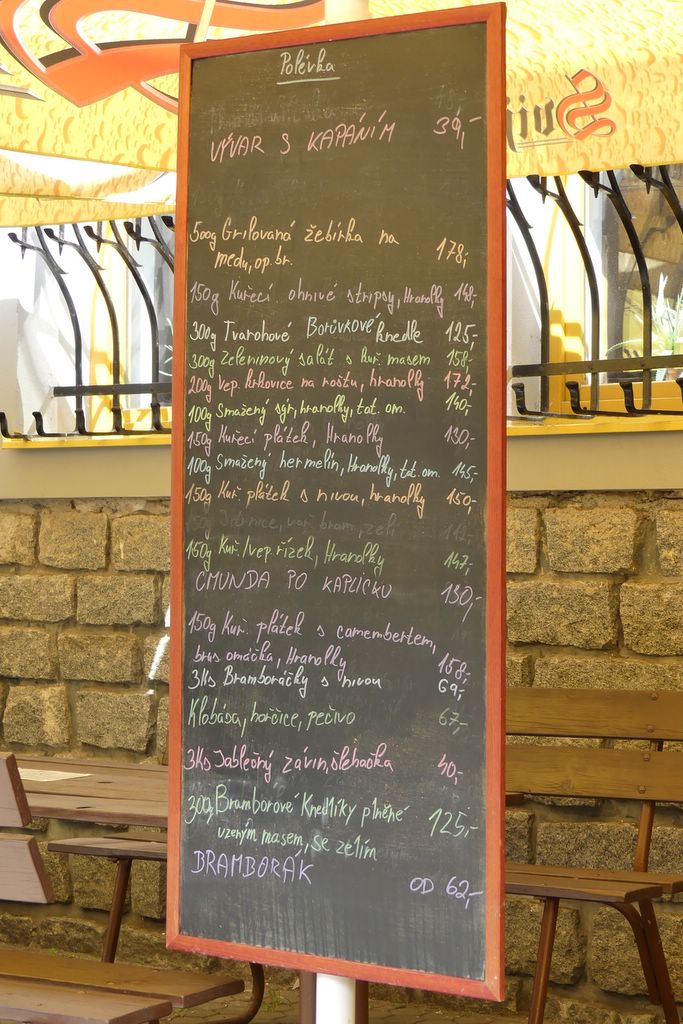 Polévka
VÝVAR S KAPÁNÍM 39,-
500g Grilovaná žebírka na
medu, op. br. 178,-
150g Kuřecí ohnivé stripsy, Hranolky 148,-
300g Tvarohové Borůvkové knedle 125,-
300g Zeleninový salát s kuř. masem 158,-
200g Vep. krkovice na roštu, hranolky 172,-
100g Smažený sýr, hranolky, tat. om. 140,-
150g Kuřecí plátek, Hranolky 130,-
100g Smažený hermelín, Hranolky, tat. om. 145,-
150g Kuř. plátek s nivou, hranolky 150,-
150g Kuř./vep. řízek, Hranolky 147,-
CMUNDA PO KAPLICKU 130,-
150g Kuř. plátek s camembertem,
brus. omáčka, Hranolky 158,-
3Ks Bramboráčky s nivou 69,-
Klobása, hořčice, pečivo 67,-
3Ks Jablečný závin, šlehačka 40,-
300g Bramborové Knedlíky plněné 125,-
uzeným masem, se zelím
BRAMBORÁK OD 62,-